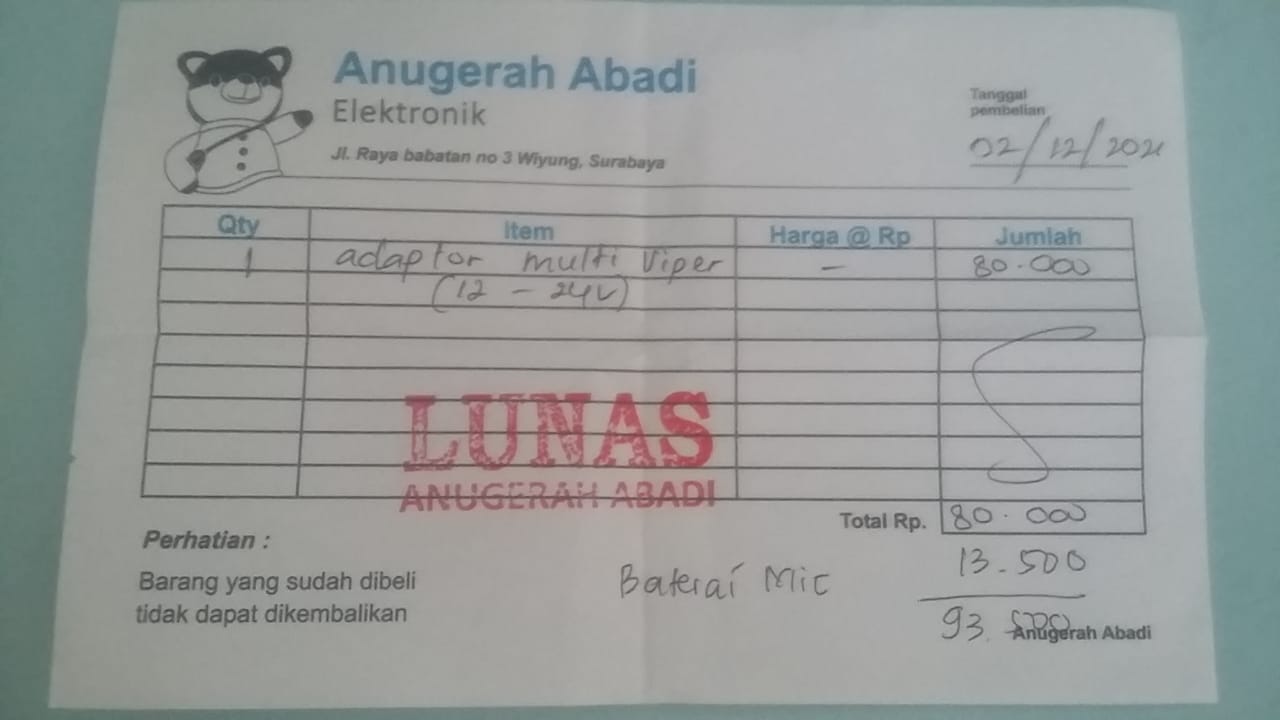 Anugerah Abadi
Elektronik
Jl. Raya babatan no 3 Wiyung, Surabaya
Tanggal
pembelian
02/12/2021
Qty Item Harga @ Rp Jumlah
1 adaptor multi Viper - 80.000
(12 - 24V)
LUNAS
ANUGERAH ABADI
Total Rp. 80.000
Perhatian :
Barang yang sudah dibeli
tidak dapat dikembalikan
Baterai Mic 13.500
93.500
Anugerah Abadi